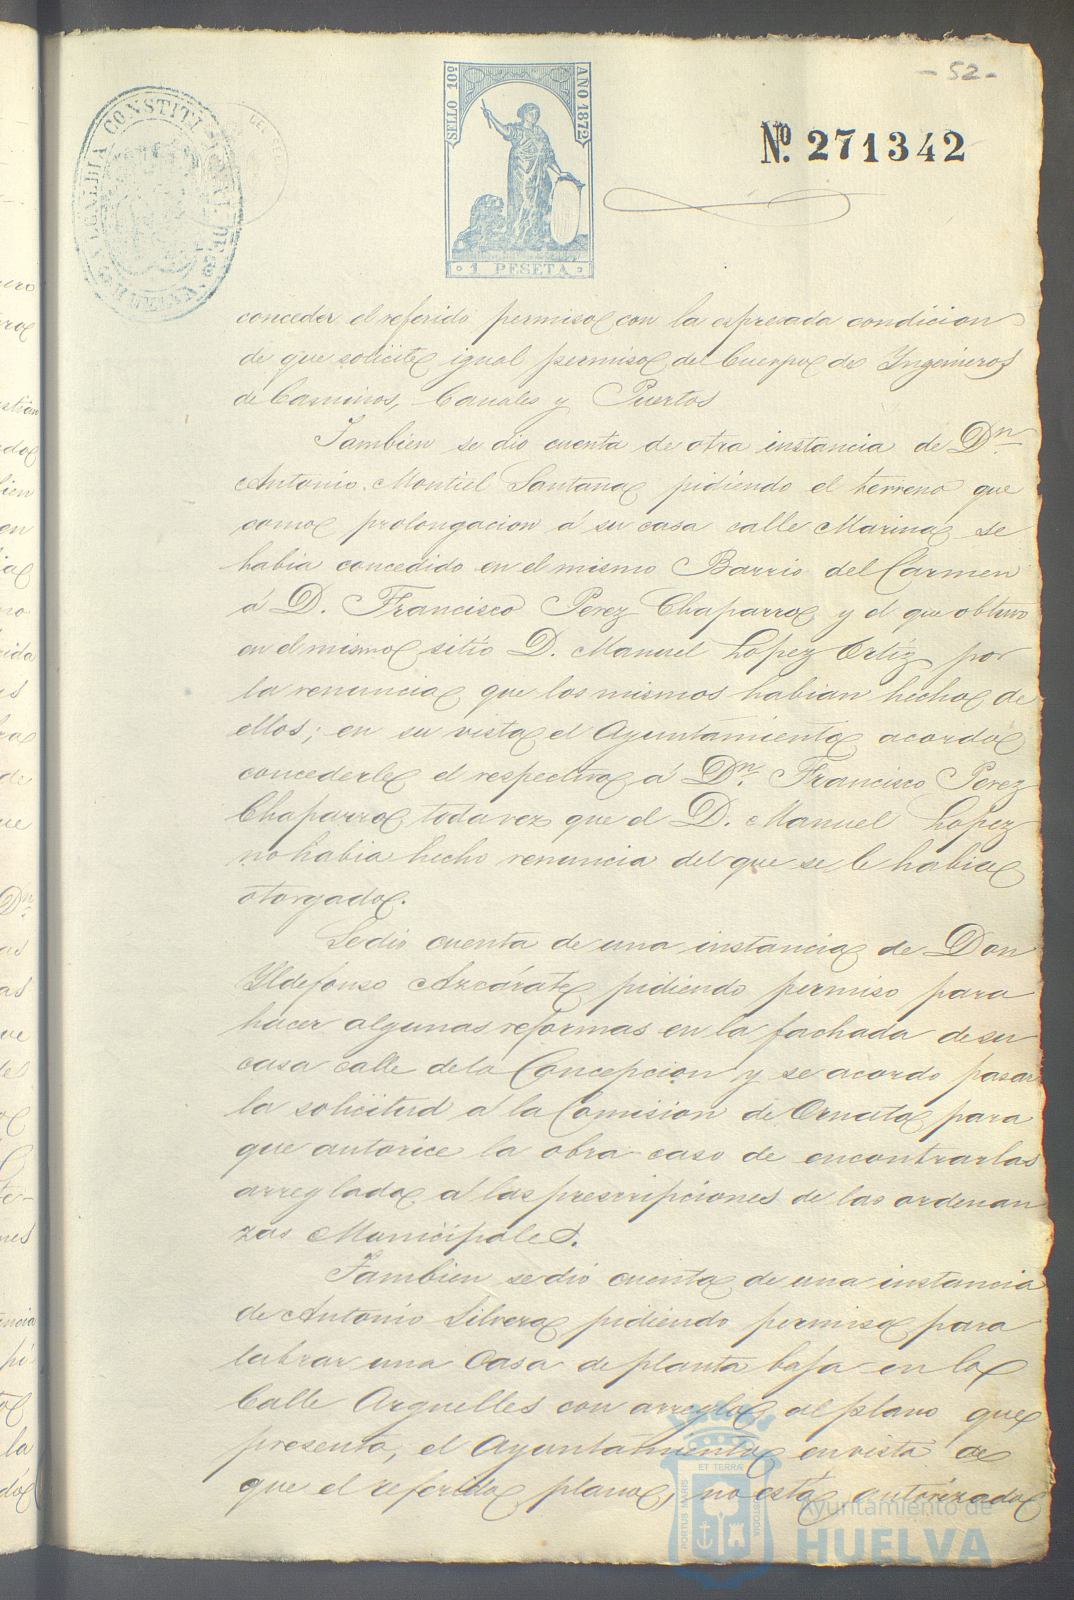 - 52 -
ALCALDIA CONSTITUCIONAL DE HUELVA
SELLO 10º
AÑO 1872
1 PESETA
Nº. 271342
conceder el referido permiso con la espresada condicion
de que solicite igual permiso del Cuerpo de Yngenieros
de Caminos, Canales y Puertos
Tambien se dio cuenta de otra instancia de Dn.
Antonio Montiel Santana pidiendo el terreno que
como prolongacion á su casa calle Marina se
habia concedido en el mismo Barrio del Carmen
á D. Francisco Perez Chaparro y el que obtuvo
en el mismo sitio D. Manuel Lopez Ortiz por
la renuncia que los mismos habian hecho de
ellos; en su vista el Ayuntamiento acordo
concederle el respectivo á Dn. Francisco Perez
Chaparro toda vez que el D. Manuel Lopez
no habia hecho renuncia del que se le habia
otorgado.
Se dio cuenta de una instancia de Don
Yldefonso Azcárate pidiendo permiso para
hacer algunas reformas en la fachada de su
casa calle de la Concepcion y se acordo pasar
la solicitud á la Comision de Ornato para
que autorice la obra caso de encontrarlas
arreglado á las prescripciones de las ordenan
zas Municipales.
Tambien se dió cuenta de una instancia
de Antonio Silvera pidiendo permiso para
labrar una Casa de planta baja en la
Calle Arguelles con arreglo al plano que
presenta, el Ayuntamiento en vista de
que el referido plano, no está autorizado
PORTUS MARIS ET TERRAE CUSTODIA
Ayuntamiento de
HUELVA